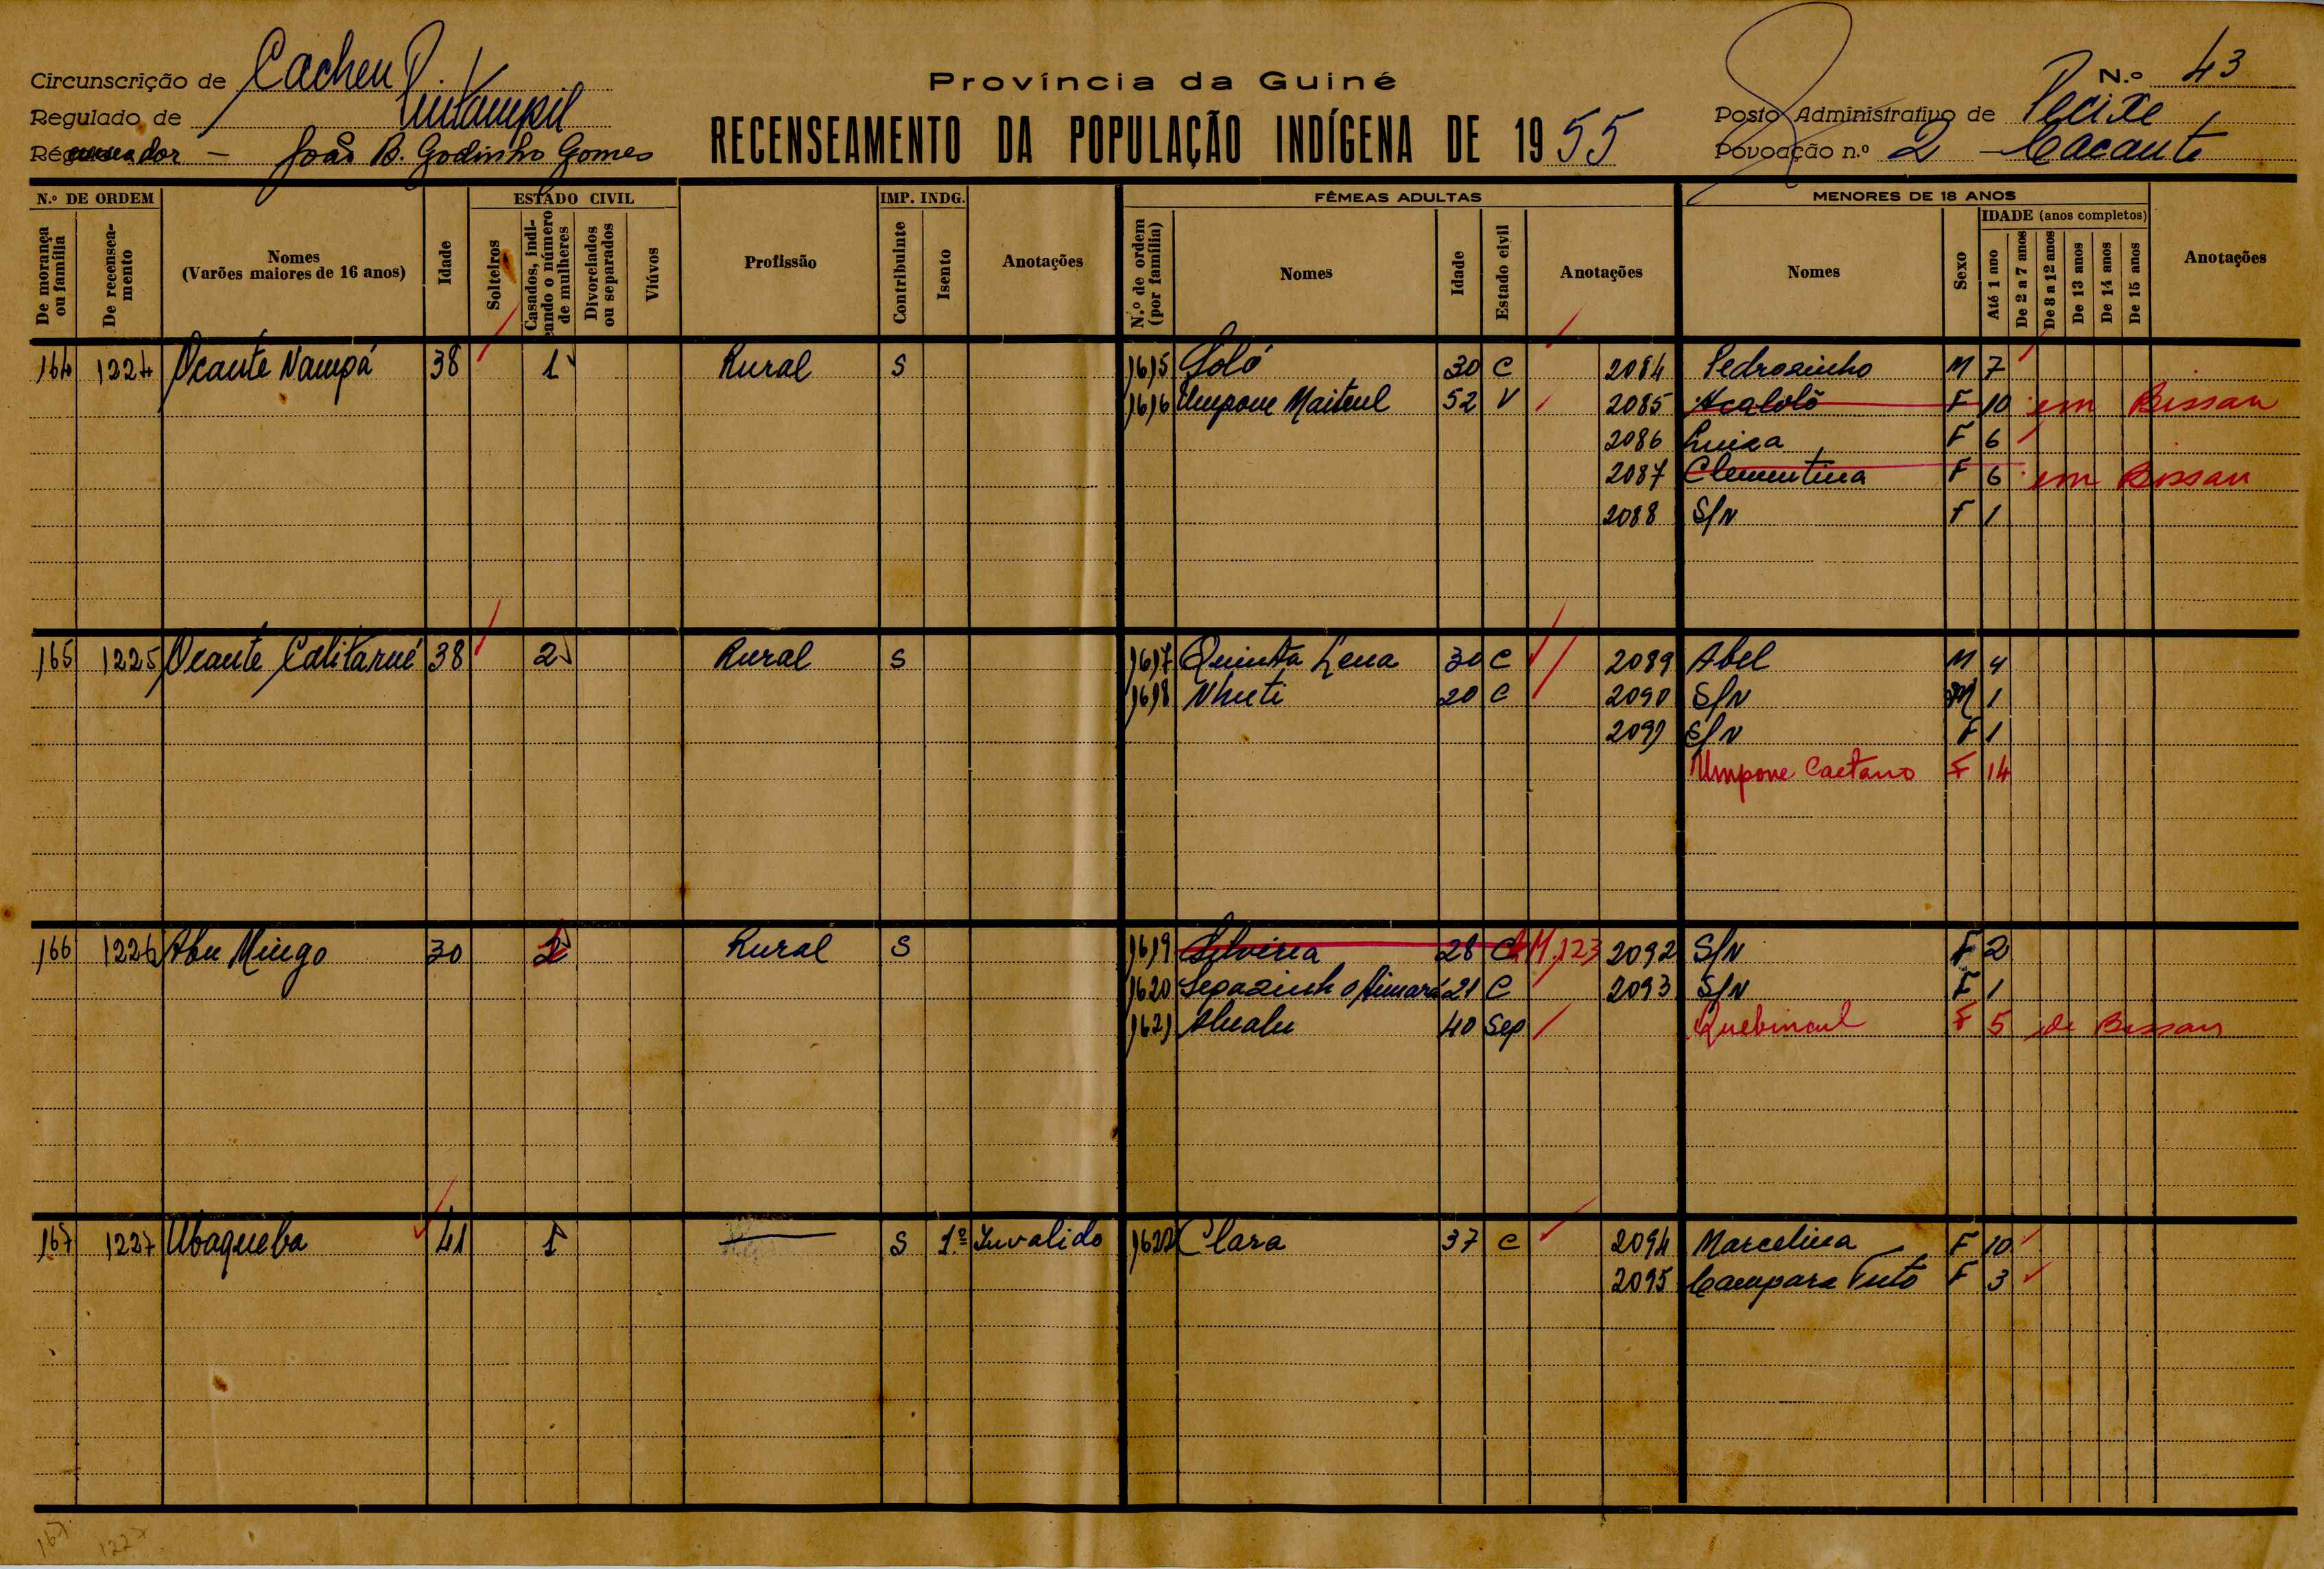 Circunscrição de Cacheu
Regulado de
Recenseador - João B. Godinho Gomes
Província da Guiné
RECENSEAMENTO DA POPULAÇÃO INDÍGENA DE 1955
N.º 43
Posto Administrativo de Pecixe
Povoação n.º 2 - Cacante
N.º DE ORDEM
De morança ou família
De recenseamento
Nomes
(Varões maiores de 16 anos)
Idade
ESTADO CIVIL
Solteiros
Casados, indicando o número de mulheres
Divorciados ou separados
Viúvos
Profissão
IMP. INDG.
Contribuinte
Isento
Anotações
FÊMEAS ADULTAS
N.º de ordem (por família)
Nomes
Idade
Estado civil
Anotações
MENORES DE 18 ANOS
Nomes
Sexo
IDADE (anos completos)
Até 1 ano
De 2 a 7 anos
De 8 a 12 anos
De 13 anos
De 14 anos
De 15 anos
Anotações
164 1224 Ocante Nampá 38 1 Rural S 1615 Soló 30 C 2084 Pedrosinho M 7
1616 Umpone Maiteul 52 V 2085 Acaloló F 10 em Bissau
2086 Luiza F 6
2087 Clementina F 6 em Bissau
2088 S/N F 1
165 1225 Ocante Calitarué 38 2 Rural S 1617 Quinta Lena 30 C 2089 Abel M 4
1618 Nhuti 20 C 2090 S/N M 1
2091 S/N F 1
Umpone Caetano F 14
166 1226 Abu Mingo 30 2 Rural S 1619 Silvéria 28 C M.123 2092 S/N F 2
1620 21 C 2093 S/N F 1
1621 40 Sep F 5 de Bissau
167 1227 Ubaqueba 41 1 S 1.º Invalido 1622 Clara 37 C 2094 Marcelina F 10
2095 Campara Tutó F 3
167 1227